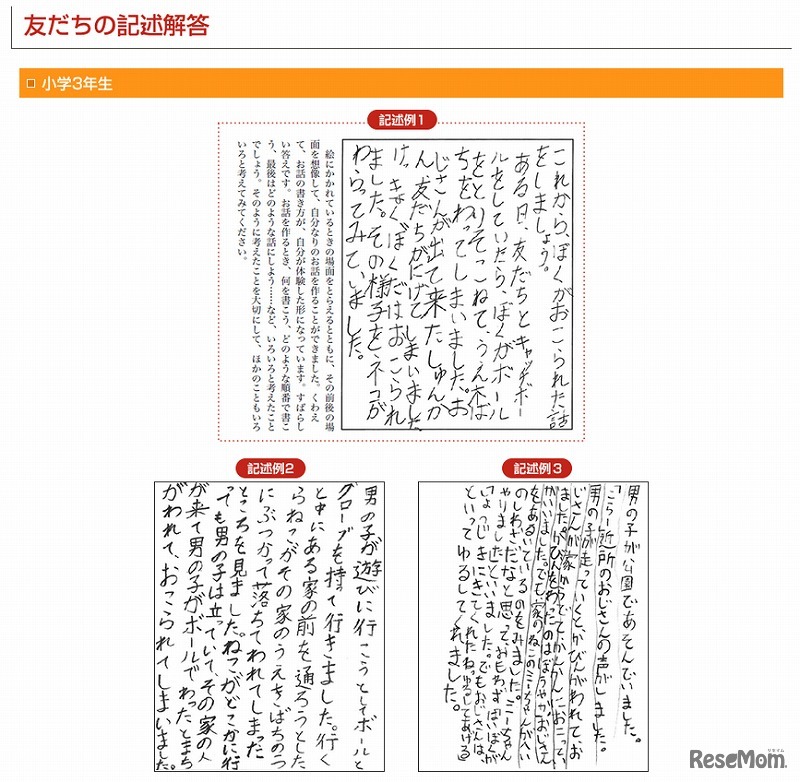 友だちの記述解答
小学3年生
記述例1
これから、ぼくがおこられた話
をしましょう。
ある日、友だちとキャッチボー
ルをしていたら、ぼくがボール
をとりそこねて、うえ木ば
ちをわってしまいました。お
じさんが出て来たしゅんか
ん、友だちがにげてしまいました。
けっきょくぼくだけおこられ
ました。その様子をネコが
わらってみていました。
絵にかかれているときの場面をとらえるとともに、その前後の場
面を想像して、自分なりのお話を作ることができました。くわえ
て、お話の書き方が、自分が体験した形になっています。すばらし
い答えです。お話を作るとき、何を書こう、どのような順番で書こ
う、最後はどのような話にしよう……など、いろいろと考えたこと
でしょう。そのように考えたことを大切にして、ほかのこともいろ
いろと考えてみてください。
記述例2
男の子が遊びに行こうとしてボールと
グローブを持って行きました。行く
と中にある家の前を通ろうとした
らねこがその家のうえきばちのつ
にぶつかって落ちてわれてしまった
ところを見ました。ねこがどこかに行
っても男の子は立っていて、その家の人
が来て男の子がボールでわったとまち
がわれて、おこられてしまいました。
記述例3
男の子が公園であそんでいました。
「こらー」近所のおじさんの声がしました。
男の子が走っていくと、かびんがわれて、お
じさんが家からでてきて、かんかんにおこってい
ました。かびんをわったのはぼうやか、おじさん
がいいました。でも家のねこのミーちゃんがへい
をあるいているのをみました。ミーちゃん
のしわざだなと思って、おもわずぼくが
やりましたといいました。でもおじさんは、
しょうじきにきてくれたねゆるしてあげる
といってゆるしてくれました。
ReseMom.
リセマム